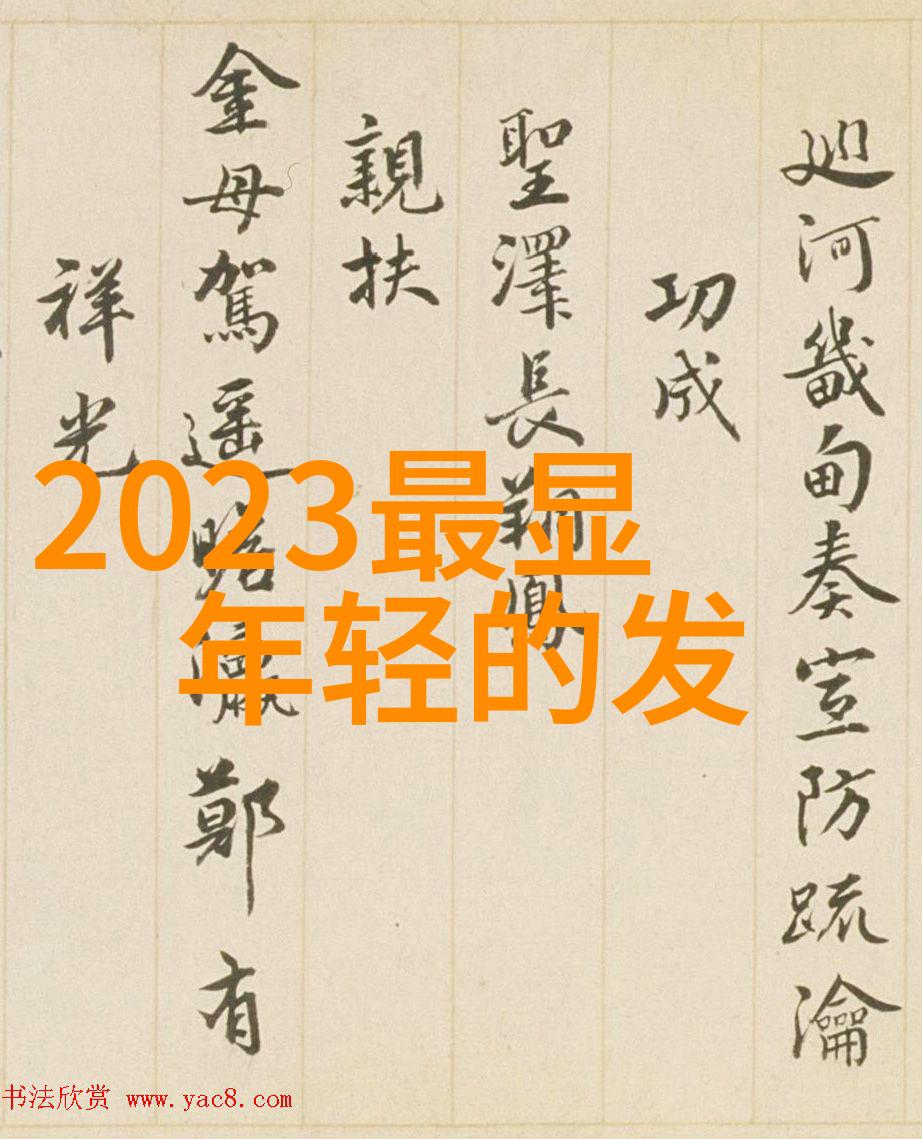 廵河畿甸奏宣防疏瀹
功成
聖澤長翔鳳
親扶
金母駕遥瞻瀛鄭有
祥光
2023最显
年轻的发
书法欣赏 www.yac8.com